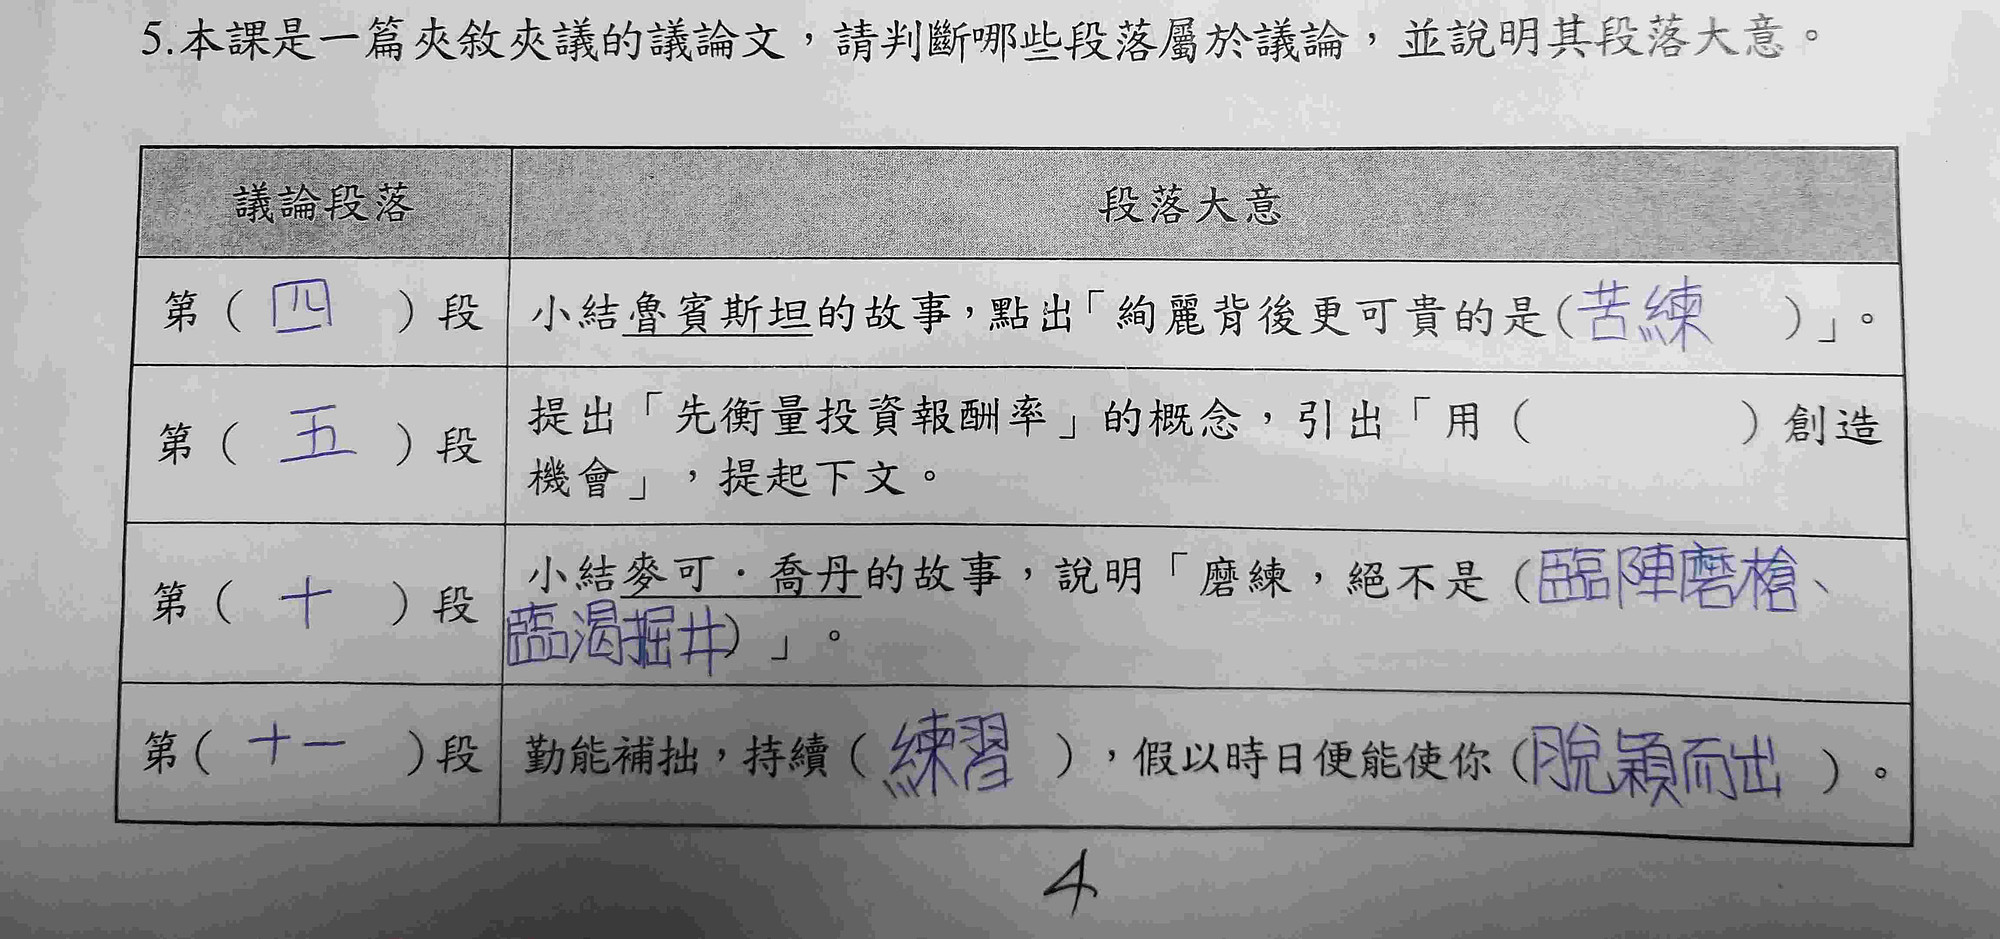 5.本課是一篇夾敘夾議的議論文，請判斷哪些段落屬於議論，並說明其段落大意。
議論段落 段落大意
第（四）段 小結魯賓斯坦的故事，點出「絢麗背後更可貴的是（苦練）」。
第（五）段 提出「先衡量投資報酬率」的概念，引出「用（　　　）創造
機會」，提起下文。
第（十）段 小結麥可．喬丹的故事，說明「磨練，絕不是（臨陣磨槍、
臨渴掘井）」。
第（十一）段 勤能補拙，持續（練習），假以時日便能使你（脫穎而出）。
4